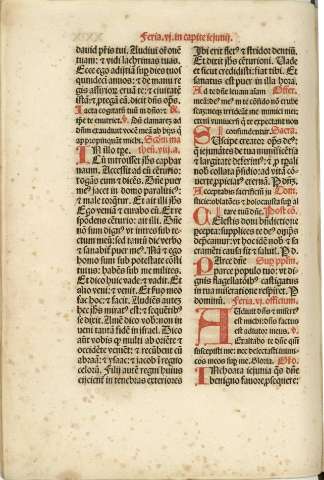 Feria.vj.in capite ieiunij.
dauid p̃ris tui. Audiui of onē
tuam: ⁊ vidi lachrimas tuas.
Ecce ego adijciā sup dies tuos
quindeci annos: ⁊ de manu re
gis assirioȝ eruā te: ⁊ ciuitatē
istā: ⁊ p̃tegā cā. dicit dñs op̃s.
Iacta cogitatū tuū in dño: ⁊
ip̃e te enutriet. v. Dū clamarē ad
dñm exaudiuit vocē meā ab his q̃
appropinquāt michi.
IN illo tp̃e.
Cū introisset iħs caphar
naum. Accessit ad eū cēturio:
rogās eum ⁊ dicēs. Dñe puer
me⁹ iacet in domo paraliti⁹:
⁊ male torq̃tur. Et ait illi iħs
Ego veniā ⁊ curabo eū. Et re
spōdens cēturio: ait illi. Dñe
nō sum dign⁹ vt intres sub te-
ctum meū: sed tantū dic verbo
⁊ sanabit̃ puer me⁹. Nā ⁊ ego
homo sum sub potestate cōsti
tutus: habēs sub me milites.
Et dico huic vade: ⁊ vadit. Et
alio veni: ⁊ venit. Et suo meo
fac hoc: ⁊ facit. Audiēs autez
hec iħs mirat⁹ est: ⁊ seq̃ntib⁹
se dixit. Amē dico vob: non in
ueni tantā fidē in israel. Dico
aūt vobis q̃ multi ab oriēte ⁊
occidēte veniēt: ⁊ recūbent cū
abraā: ⁊ ysaac: ⁊ iacob ī regno
celoȝ. Filij autē regni huius
eijcient̃ in tenebras exteriores
Ibi erit flet⁹ ⁊ stridor dentiū.
Et dixit iħs cēturioni. Vade
et sicut credidisti: fiat tibi. Et
sanatus est puer in illa hora.
Ad te dñe leuaui aīam Offer.
meā: de⁹ me⁹ in te cōfido nō erube
scaȝ: neq̃ irrideāt me inimici mei:
etenī vniuersi q̃ te expectāt non
confundentur. Sacra.
Suscipe creator op̃s de⁹:
q̃ ieiunātes de tua munificētia
⁊ largitate deferim⁹: ⁊ p̃ tp̃ali
nob collata p̃sidio: ad vitā cō
uerte, ppicia⁹ eternā. P dñȝ.
Acceptabis sacrificiū iu Com.
sticie: oblatões ⁊ holocausta sup al
tare tuū dñe. Post cō.
Celestis doni bñdictione
pcepta: supplices te de⁹ op̃ns
dep̃camur. vt hoc idē nob ⁊ sa
cramēti causa sit ⁊ salut̃. P d.
Parce dñe Sup pplm.
parce populo tuo: vt di-
gnis flagellatiōib⁹ castigatus
in tua miseratione respiret. P
dominū. Feria.vj.officium.
Audiuit dñs ⁊ misert⁹
est michi: dñs factus
est adiutor meus. v.
Exaltabo te dñe qm̄
suscepisti me: nec delectasti inimi-
cos meos sup me. Gloria. Oro.
Inchoata ieiunia q̃s dñe
benigno fauore, pseq̃re: